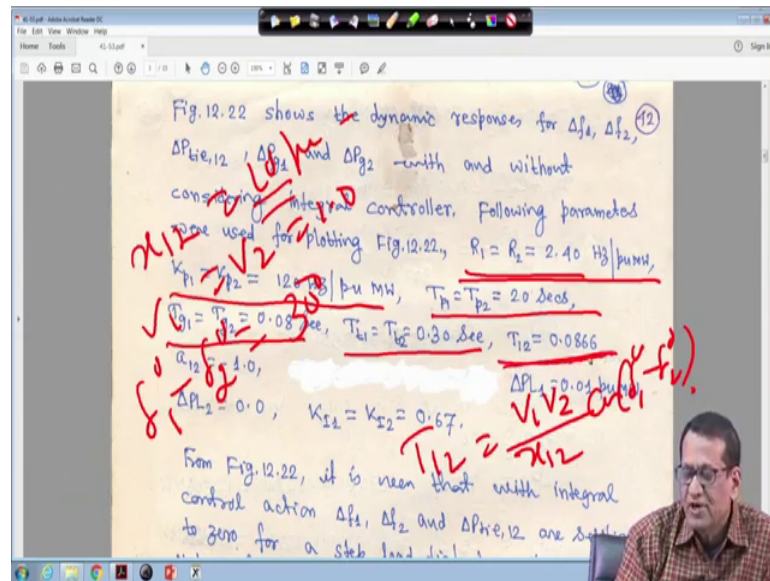 41-53.pdf - Adobe Acrobat Reader DC
File Edit View Window Help
Home Tools 41-53.pdf × Sign I
Fig.12.22 shows the dynamic responses for Δf1, Δf2, 12
ΔPtie,12, ΔPg1 and ΔPg2 with and without
considering integral controller. Following parameters
were used for plotting Fig.12.22., R1 = R2 = 2.40 Hz/pu MW,
Kp1 = Kp2 = 120 Hz/pu MW, Tp1 = Tp2 = 20 Secs,
Tg1 = Tg2 = 0.08 Sec, Tt1 = Tt2 = 0.30 Sec, T12 = 0.0866
a12 = -1.0, ΔPL1 = 0.01 pu MW
ΔPL2 = 0.0, KI1 = KI2 = 0.67.
From Fig.12.22, it is seen that with integral
control action Δf1, Δf2 and ΔPtie,12 are settling
to zero for a step load
x12
V2 = 1.0
30°
T12 = V1 V2
x12